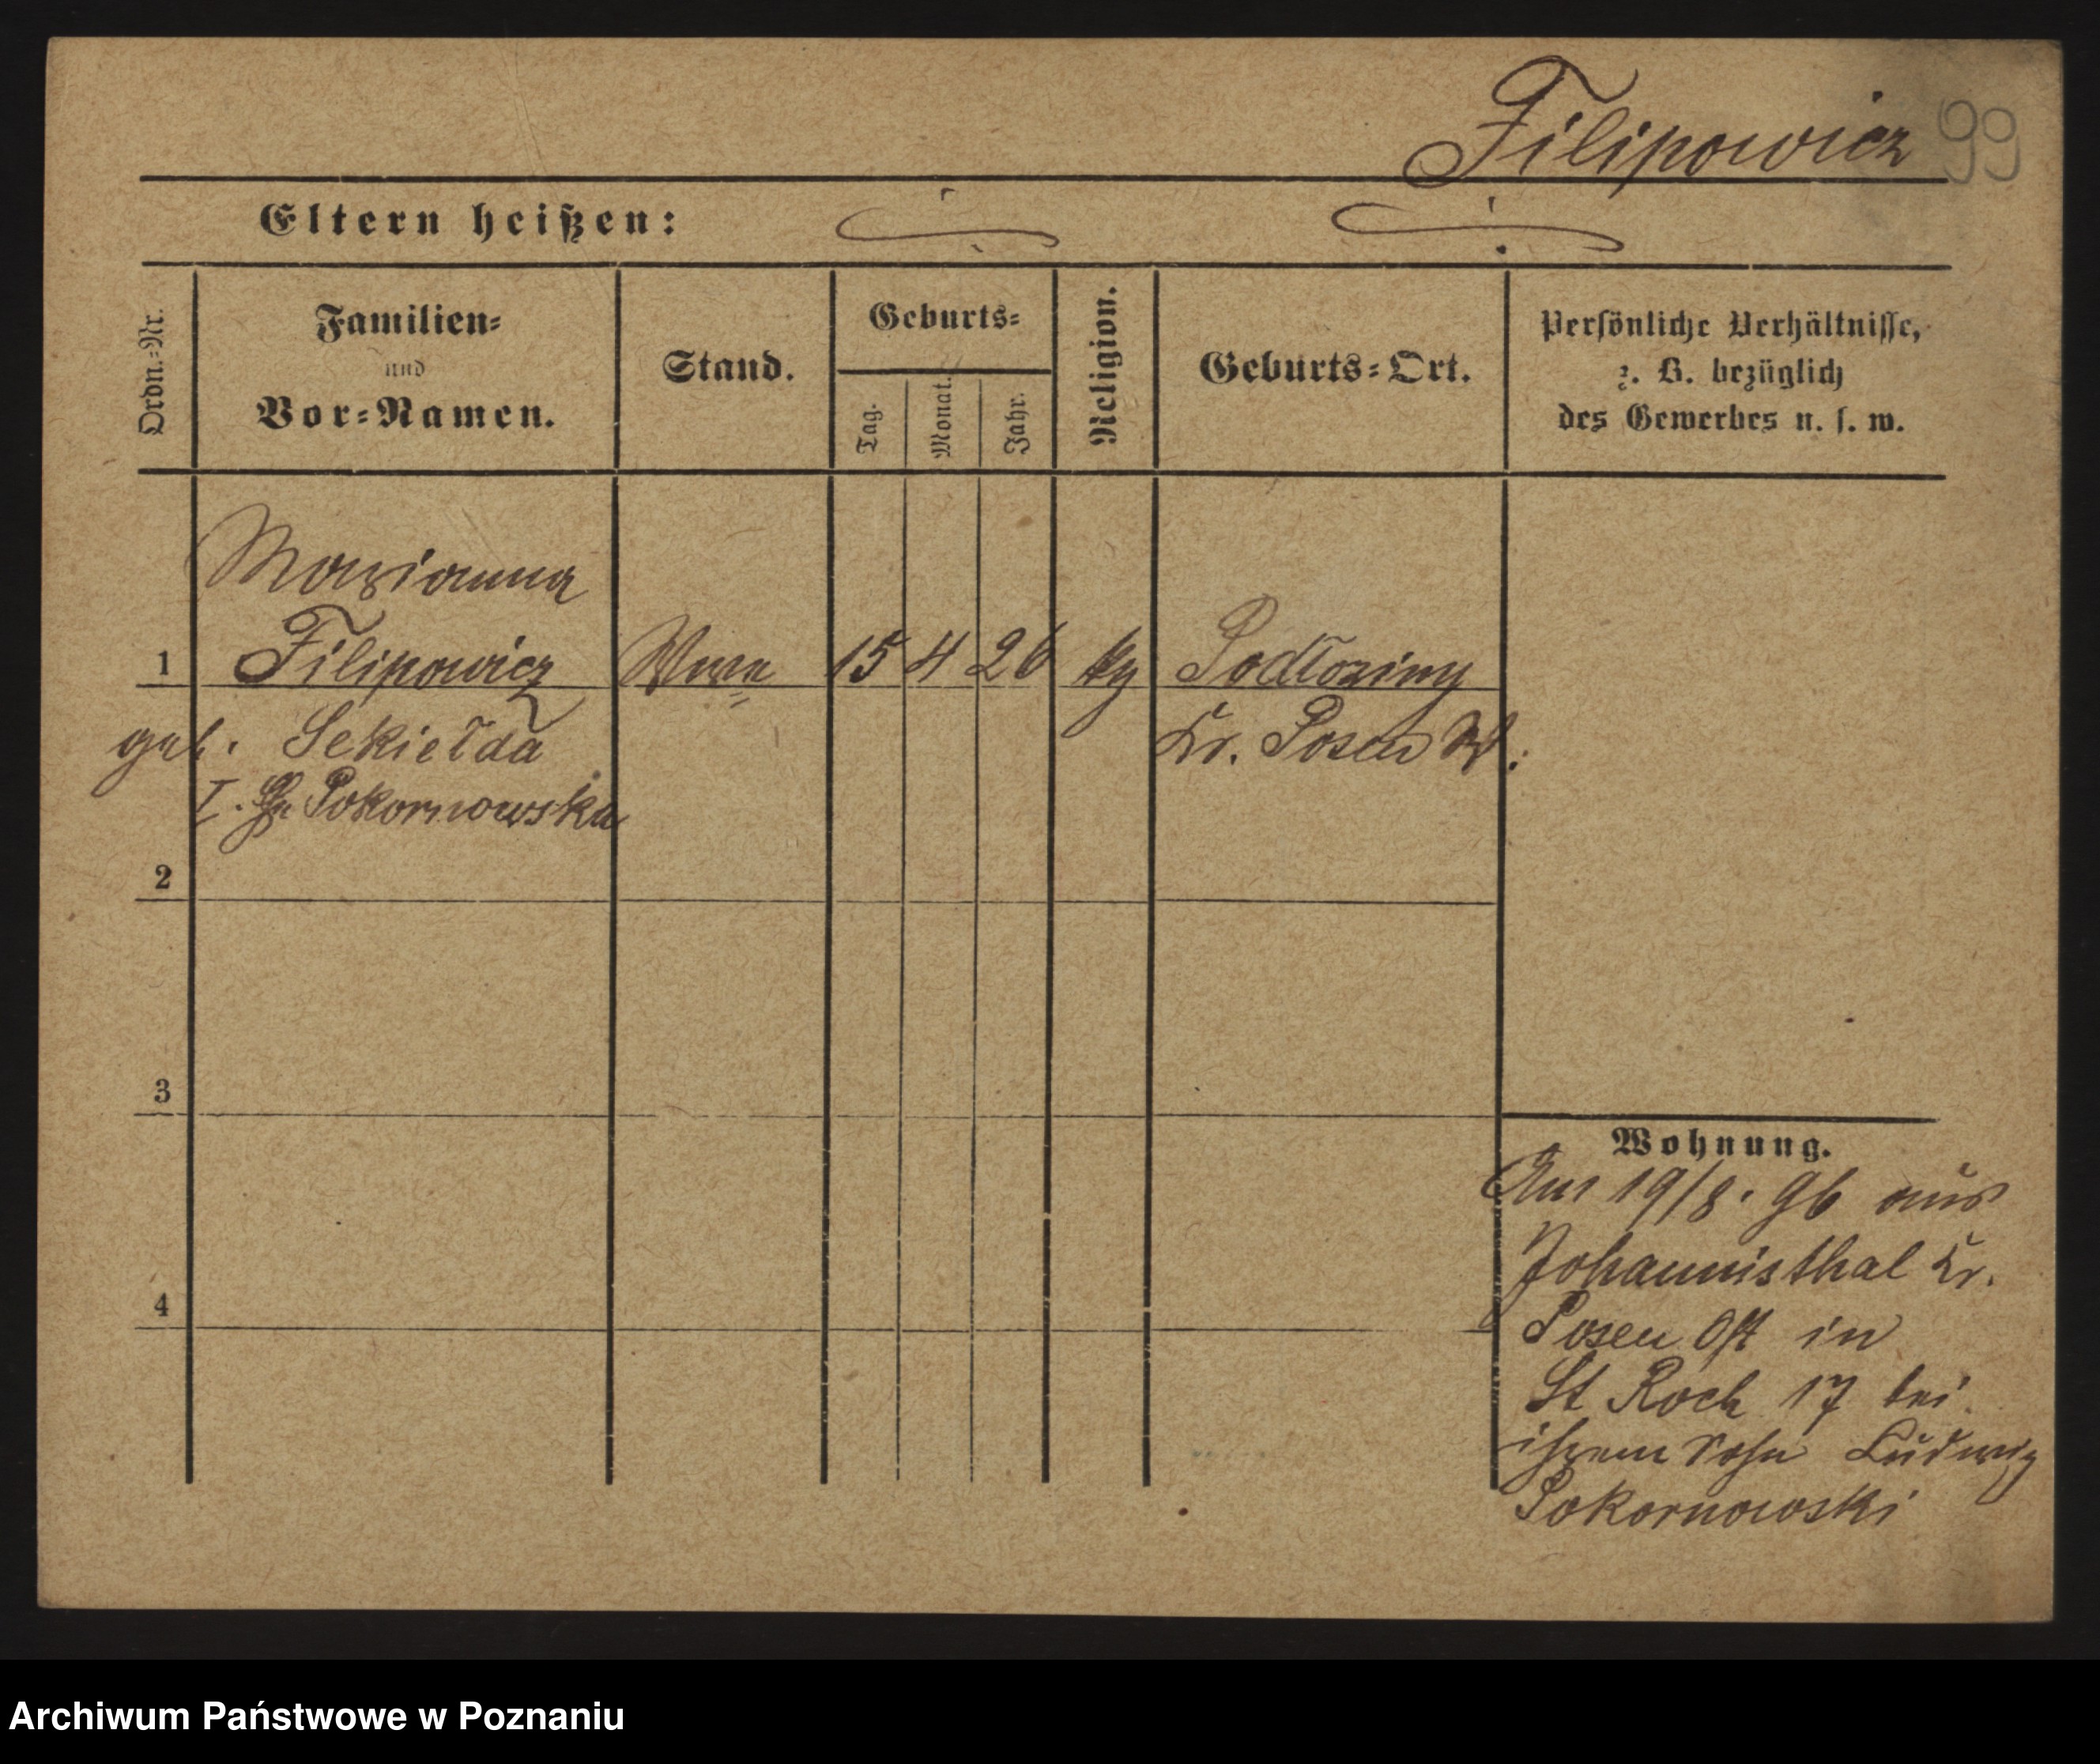 Filipowicz 99
Eltern heißen:
Ordn.-Nr.
Familien-
und
Vor-Namen.
Stand.
Geburts-
Tag.
Monat.
Jahr.
Religion.
Geburts-Ort.
Persönliche Verhältnisse,
z. B. bezüglich
des Gewerbes u. s. w.
Marianna
1 Filipowicz Wwe 15 4 26 kg Podłoziny
geb. Sekiełda Kr. Posen W.
I. Pokornowska
2
3
4
Wohnung.
Am 19/8. 96 aus
Johannisthal Kr.
Posen Ost in
St Roch 17 bei
ihrem Sohn Ludwig
Pokornowski
Archiwum Państwowe w Poznaniu